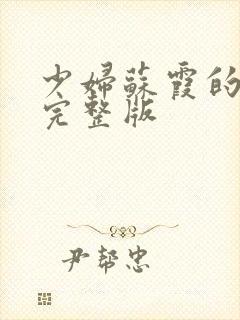 少婦蘇霞的
完整版
尹帮忠